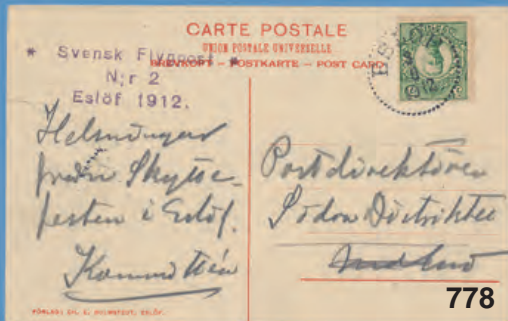 CARTE POSTALE
UNION POSTALE UNIVERSELLE
BREVKORT – POSTKARTE – POST CARD
* Svensk Flygpost *
N:r 2
Eslöf 1912.
Helsningar
från Skytte-
festen i Eslöf.
Kommittén
Postdirektören
Södra Distriktet
FÖRLAG:
ESLÖF.
778